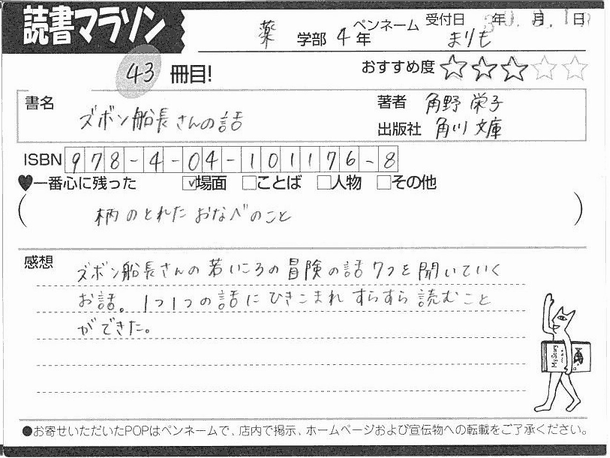 読書マラソン
薬 学部 4 年 ペンネーム まりも 受付日 30年 月 日
43 冊目! おすすめ度 ☆☆☆☆☆
書名 ズボン船長さんの話
著者 角野 栄子
出版社 角川 文庫
ISBN 978-4-04-101176-8
♥一番心に残った ☑場面 □ことば □人物 □その他
( 柄のとれた おなべのこと )
感想 ズボン船長さんの若いころの冒険の話7つを聞いていく
お話。1つ1つの話にひきこまれすらすら読むこと
ができた。
My Story
●お寄せいただいたPOPはペンネームで、店内で掲示、ホームページおよび宣伝物への転載をご了承ください。